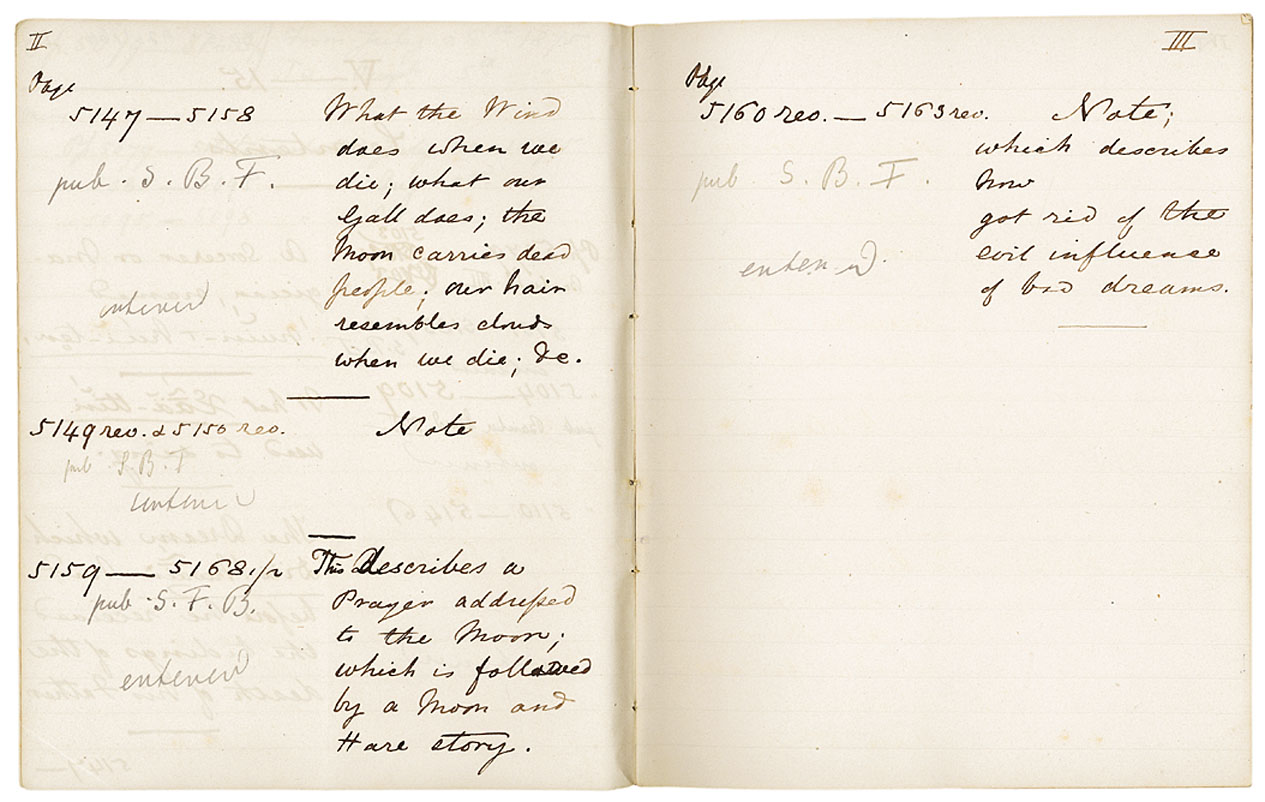 II
Page
5147 — 5158 What the Wind
does when we
pub. S. B. F. die; what our
Gall does; the
Moon carries dead
people; our hair
entered
resembles clouds
when we die; &c.
5149 rev. & 5150 rev. Note
pub S. B. F
entered
5159 — 5168 1/2 This describes a
pub. S. F. B. Prayer addressed
to the Moon;
which is followed
entered
by a Moon and
Hare story.
III
Page
5160 rev. — 5163 rev. Note;
which describes
pub S. B. F. how
got rid of the
entered evil influence
of bad dreams.